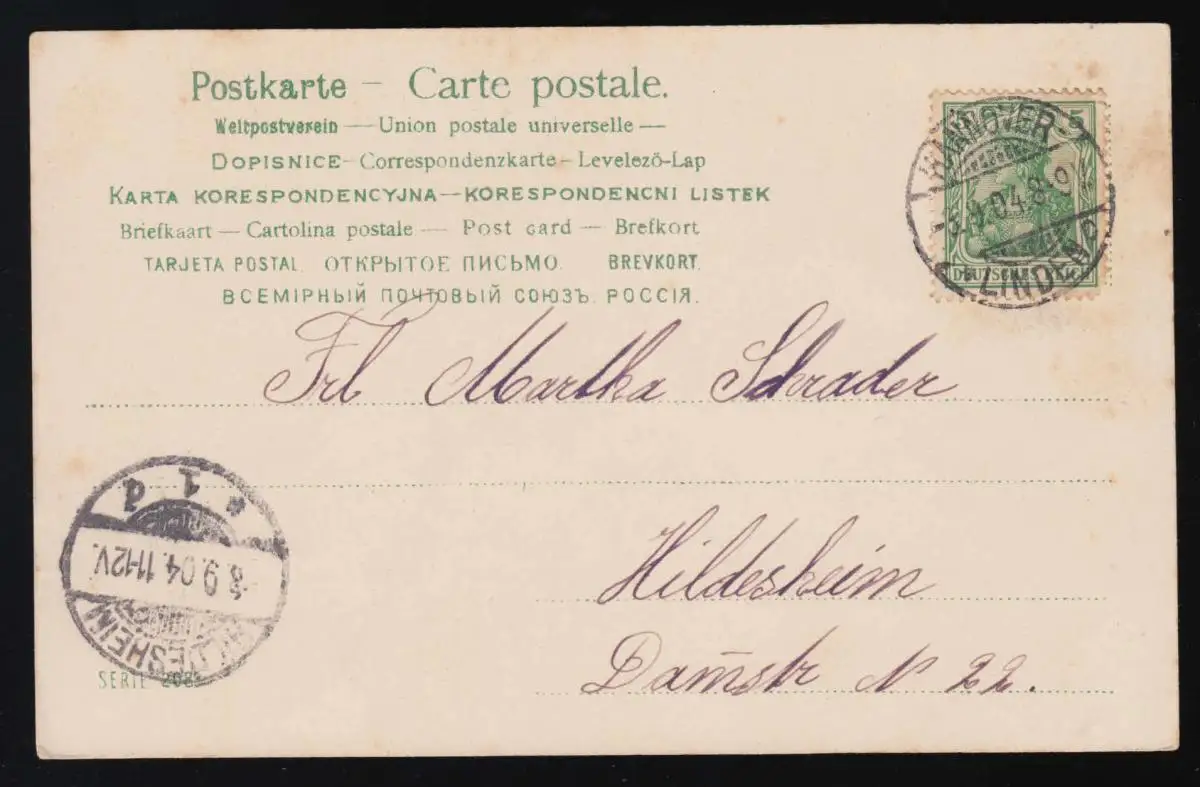 Postkarte – Carte postale.
Weltpostverein — Union postale universelle —
DOPISNICE – Correspondenzkarte – Levelező-Lap
KARTA KORESPONDENCYJNA — KORESPONDENCNI LISTEK
Briefkaart — Cartolina postale — Post card — Brefkort
TARJETA POSTAL. ОТКРЫТОЕ ПИСЬМО. BREVKORT.
ВСЕМІРНЫЙ ПОЧТОВЫЙ СОЮЗЪ. РОССІЯ.
5
HANNOVER
9.04.8
DEUTSCHES REICH
LINDEN
Frl Martha Schrader
Hildesheim
Dam̅str N 22.
* 1 d
-8.9.04.11-12V.
HILDESHEIM
SERIE 208